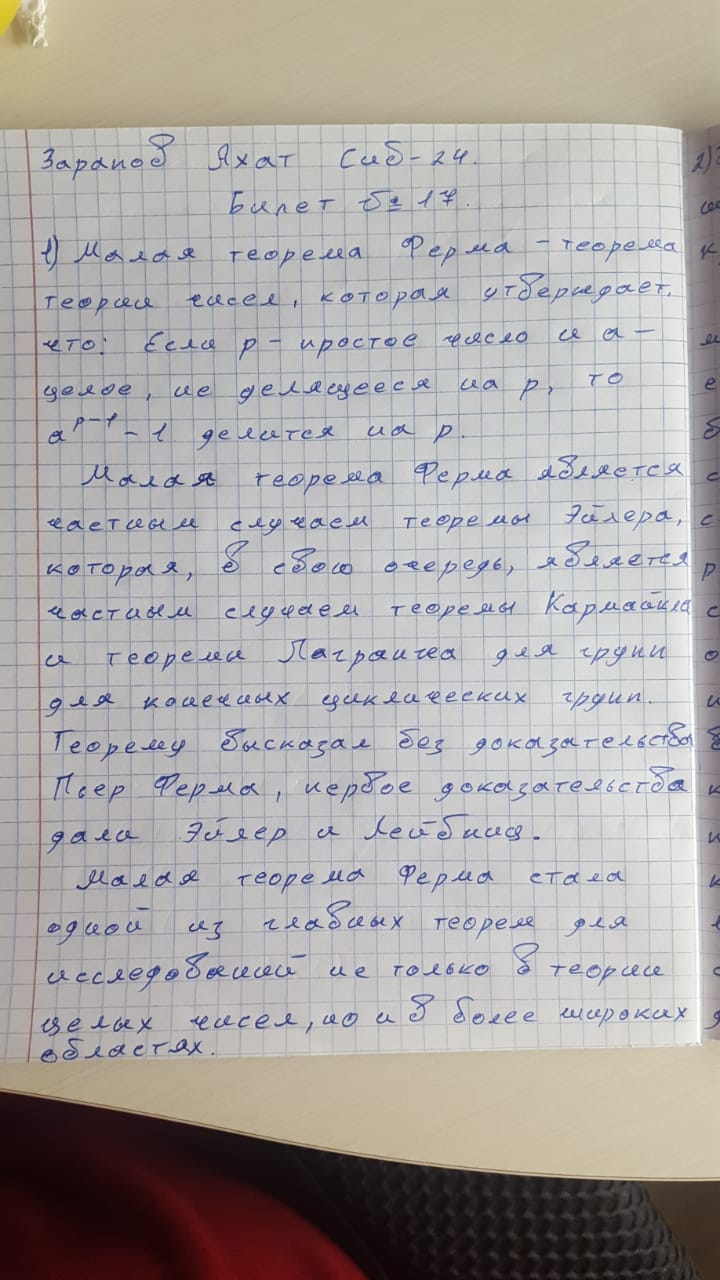 Зарапов Яхат Сиб-24.
Билет № 17.
1) Малая теорема Ферма - теорема
теории чисел, которая утверждает,
что: Если p - простое число и a -
целое, не делящееся на p, то
a^{p-1} - 1 делится на p.
Малая теорема Ферма является
частным случаем теоремы Эйлера,
которая, в свою очередь, является
частным случаем теоремы Кармайкла
и теоремы Лагранжа для групп
для конечных циклических групп.
Теорему высказал без доказательства
Пьер Ферма, первое доказательства
дали Эйлер и Лейбниц.
Малая теорема Ферма стала
одной из главных теорем для
исследований не только в теории
целых чисел, но и в более широких
областях.
2)